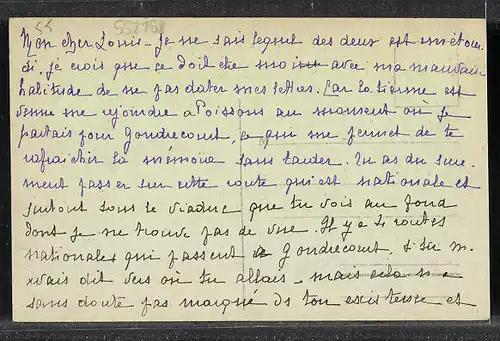 55 552168
Mon cher Louis - Je ne sais lequel des deux est métour
di. Je crois que ce doit être moi avec ma mauvaise
habitude de ne pas dater mes lettres. Car la tienne est
venue me rejoindre a Poissons au moment où je
partais pour Gondrecourt, ce qui me permet de te
rafraichir la mémoire sans tarder. Tu as du sure
ment passer sur cette route qui est nationale et
surtout sous le viaduc que tu vois au fond
dont je ne trouve pas de vue. Il y a 4 routes
nationales qui passent à Gondrecourt, si tu m.
avais dit vers où tu allais - mais cela n'a
sans doute pas marqué ds ton existence et